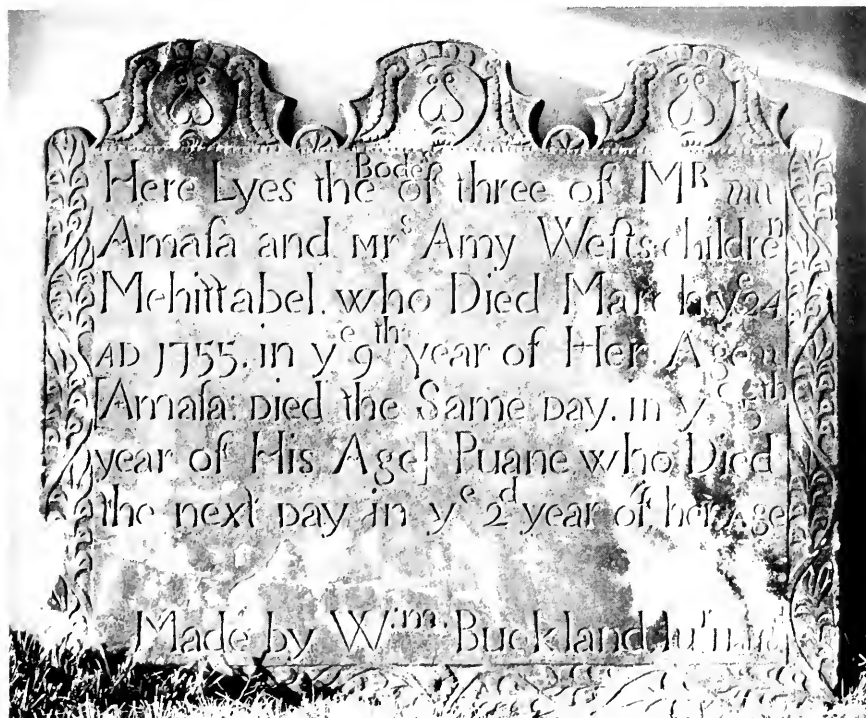 Here Lyes the Bodes of three of Mr
Amaſa and Mrs Amy Weſts children
Mehittabel. who Died March ye 24
AD 1755. in ye 9th year of Her Age
[Amaſa: Died the Same Day. in ye 5th
year of His Age] Puane who Died
the next Day in ye 2d year of her Age
Made by Wim. Buckland